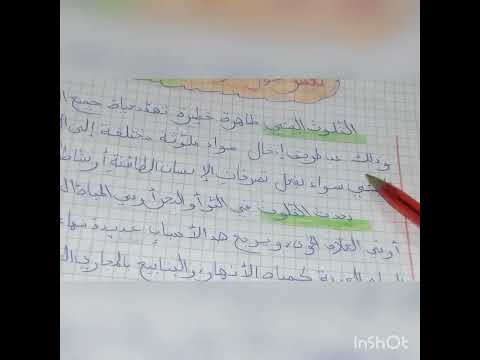 التلوث البيئي ظاهرة خطيرة تهدد حياة جميع ا
وذلك عن طريق إدخال مواد ملوثة مختلفة إلى ا
سواء بفعل تصرفات الإنسان الطائشة أو نشاطا
يحدث التلوث في الجو أو البحر أو في المياه ال
أو في الغلاف الجوي ويرجع هذا لأسباب عديدة منها
كمياه الأنهار، والينابيع بالمجاري ال
InShOt